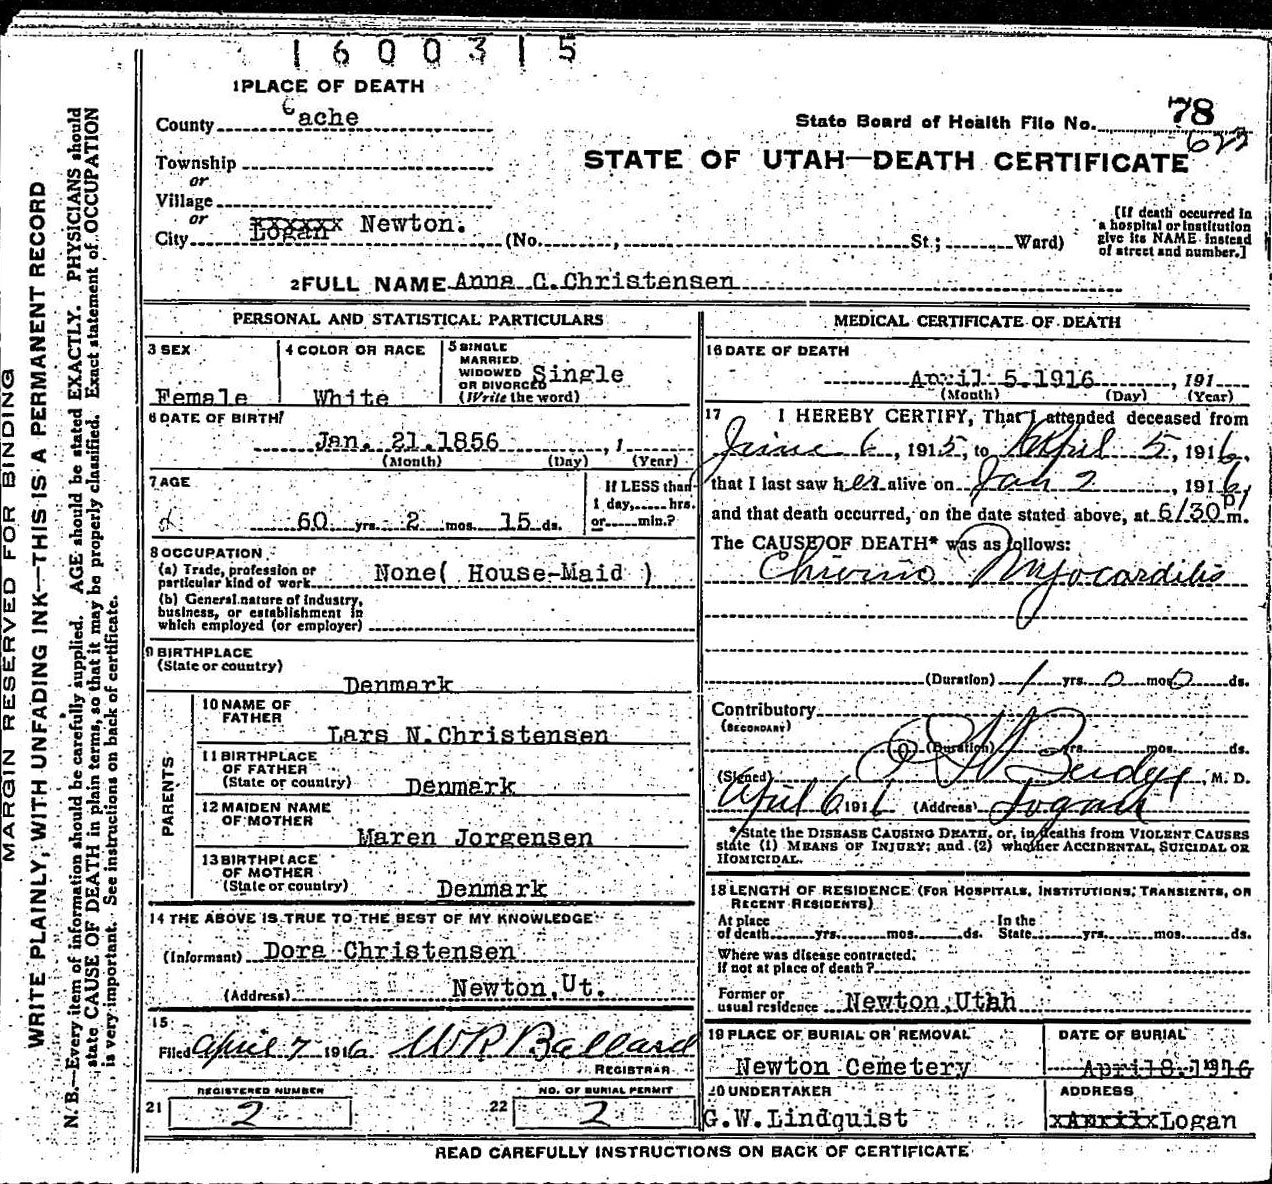 1600315
1 PLACE OF DEATH
County Cache
State Board of Health File No. 78
622
Township
or
Village
or
City xxxxxx Logan Newton. (No. , St.; Ward)
STATE OF UTAH—DEATH CERTIFICATE
[If death occurred in
a hospital or institution
give its NAME instead
of street and number.]
2 FULL NAME Anna C. Christensen
PERSONAL AND STATISTICAL PARTICULARS
3 SEX
Female
4 COLOR OR RACE
White
5 SINGLE
MARRIED
WIDOWED
OR DIVORCED
(Write the word)
Single
6 DATE OF BIRTH
Jan. 21.1856 , 1
(Month) (Day) (Year)
7 AGE
60 yrs. 2 mos. 15 ds.
If LESS than
1 day, hrs.
or min.?
8 OCCUPATION
(a) Trade, profession or
particular kind of work None( House-Maid )
(b) General nature of industry,
business, or establishment in
which employed (or employer)
9 BIRTHPLACE
(State or country)
Denmark
PARENTS
10 NAME OF
FATHER
Lars N.Christensen
11 BIRTHPLACE
OF FATHER
(State or country) Denmark
12 MAIDEN NAME
OF MOTHER
Maren Jorgensen
13 BIRTHPLACE
OF MOTHER
(State or country) Denmark
14 THE ABOVE IS TRUE TO THE BEST OF MY KNOWLEDGE
(Informant) Dora Christensen
(Address) Newton,Ut.
15
Filed April 7 1916 W R Ballard
REGISTRAR
REGISTERED NUMBER
21 2
NO. OF BURIAL PERMIT
22 2
MEDICAL CERTIFICATE OF DEATH
16 DATE OF DEATH
April 5.1916 , 191
(Month) (Day) (Year)
17 I HEREBY CERTIFY, That I attended deceased from
June 6, 1915, to April 5, 1916,
that I last saw her alive on Jan 2, 1916,
and that death occurred, on the date stated above, at 6/30 p m.
The CAUSE OF DEATH* was as follows:
Chronic Myocarditis
(Duration) 1 yrs. 0 mos. 0 ds.
Contributory
(SECONDARY)
(Duration) yrs. mos. ds.
(Signed) M. D.
April 6 1916 (Address) Logan
*State the DISEASE CAUSING DEATH, or, in deaths from VIOLENT CAUSES
state (1) MEANS OF INJURY; and (2) whether ACCIDENTAL, SUICIDAL OR
HOMICIDAL.
18 LENGTH OF RESIDENCE (FOR HOSPITALS, INSTITUTIONS, TRANSIENTS, OR
RECENT RESIDENTS)
At place
of death yrs. mos. ds.
In the
State yrs. mos. ds.
Where was disease contracted,
if not at place of death?
Former or
usual residence Newton,Utah
19 PLACE OF BURIAL OR REMOVAL
Newton Cemetery
DATE OF BURIAL
April8.1916
20 UNDERTAKER
G.W.Lindquist
ADDRESS
xAprilxLogan
READ CAREFULLY INSTRUCTIONS ON BACK OF CERTIFICATE
MARGIN RESERVED FOR BINDING
WRITE PLAINLY, WITH UNFADING INK—THIS IS A PERMANENT RECORD
N. B.—Every item of information should be carefully supplied. AGE should be stated EXACTLY. PHYSICIANS should
state CAUSE OF DEATH in plain terms, so that it may be properly classified. Exact statement of OCCUPATION
is very important. See instructions on back of certificate.